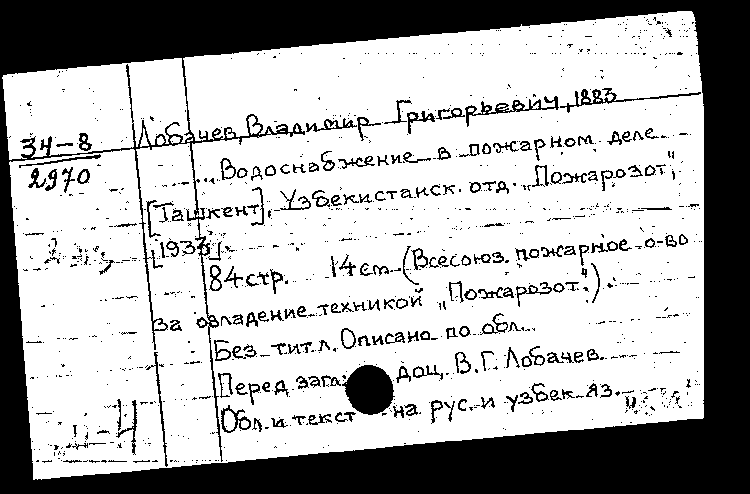 34-8
2970
Лобачев, Владимир Григорьевич, 1883
... Водоснабжение в пожарном деле.
[Ташкент], Узбекистанск. отд. "Пожарозот",
[1933].
84 стр. 14 cm (Всесоюз. пожарное о-во
за овладение техникой "Пожарозот".).
Без тит. л. Описано по обл.
Перед загл: доц. В.Г. Лобачев.
Обл. и текст на рус. и узбек яз.